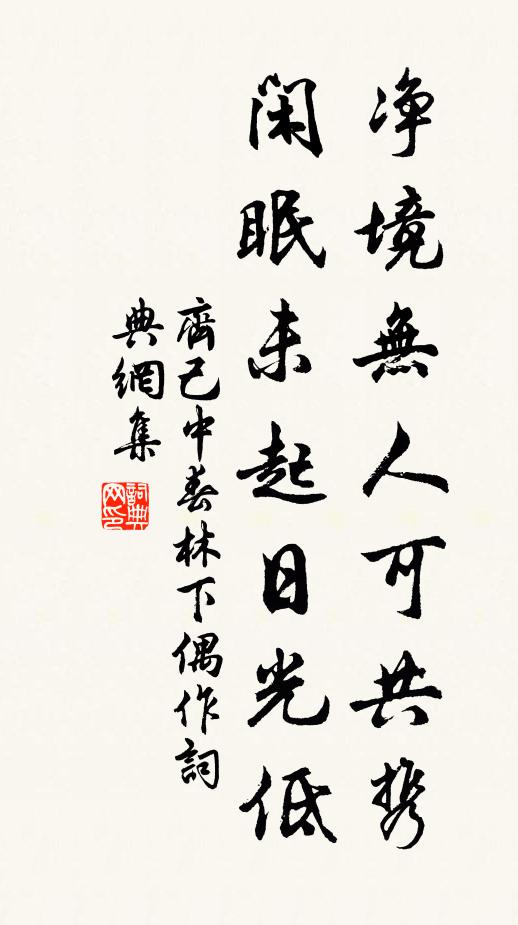 净境無人可共携
閑眠未起日光低
齊己中春林下偶作詞
典網集
詞典
网印